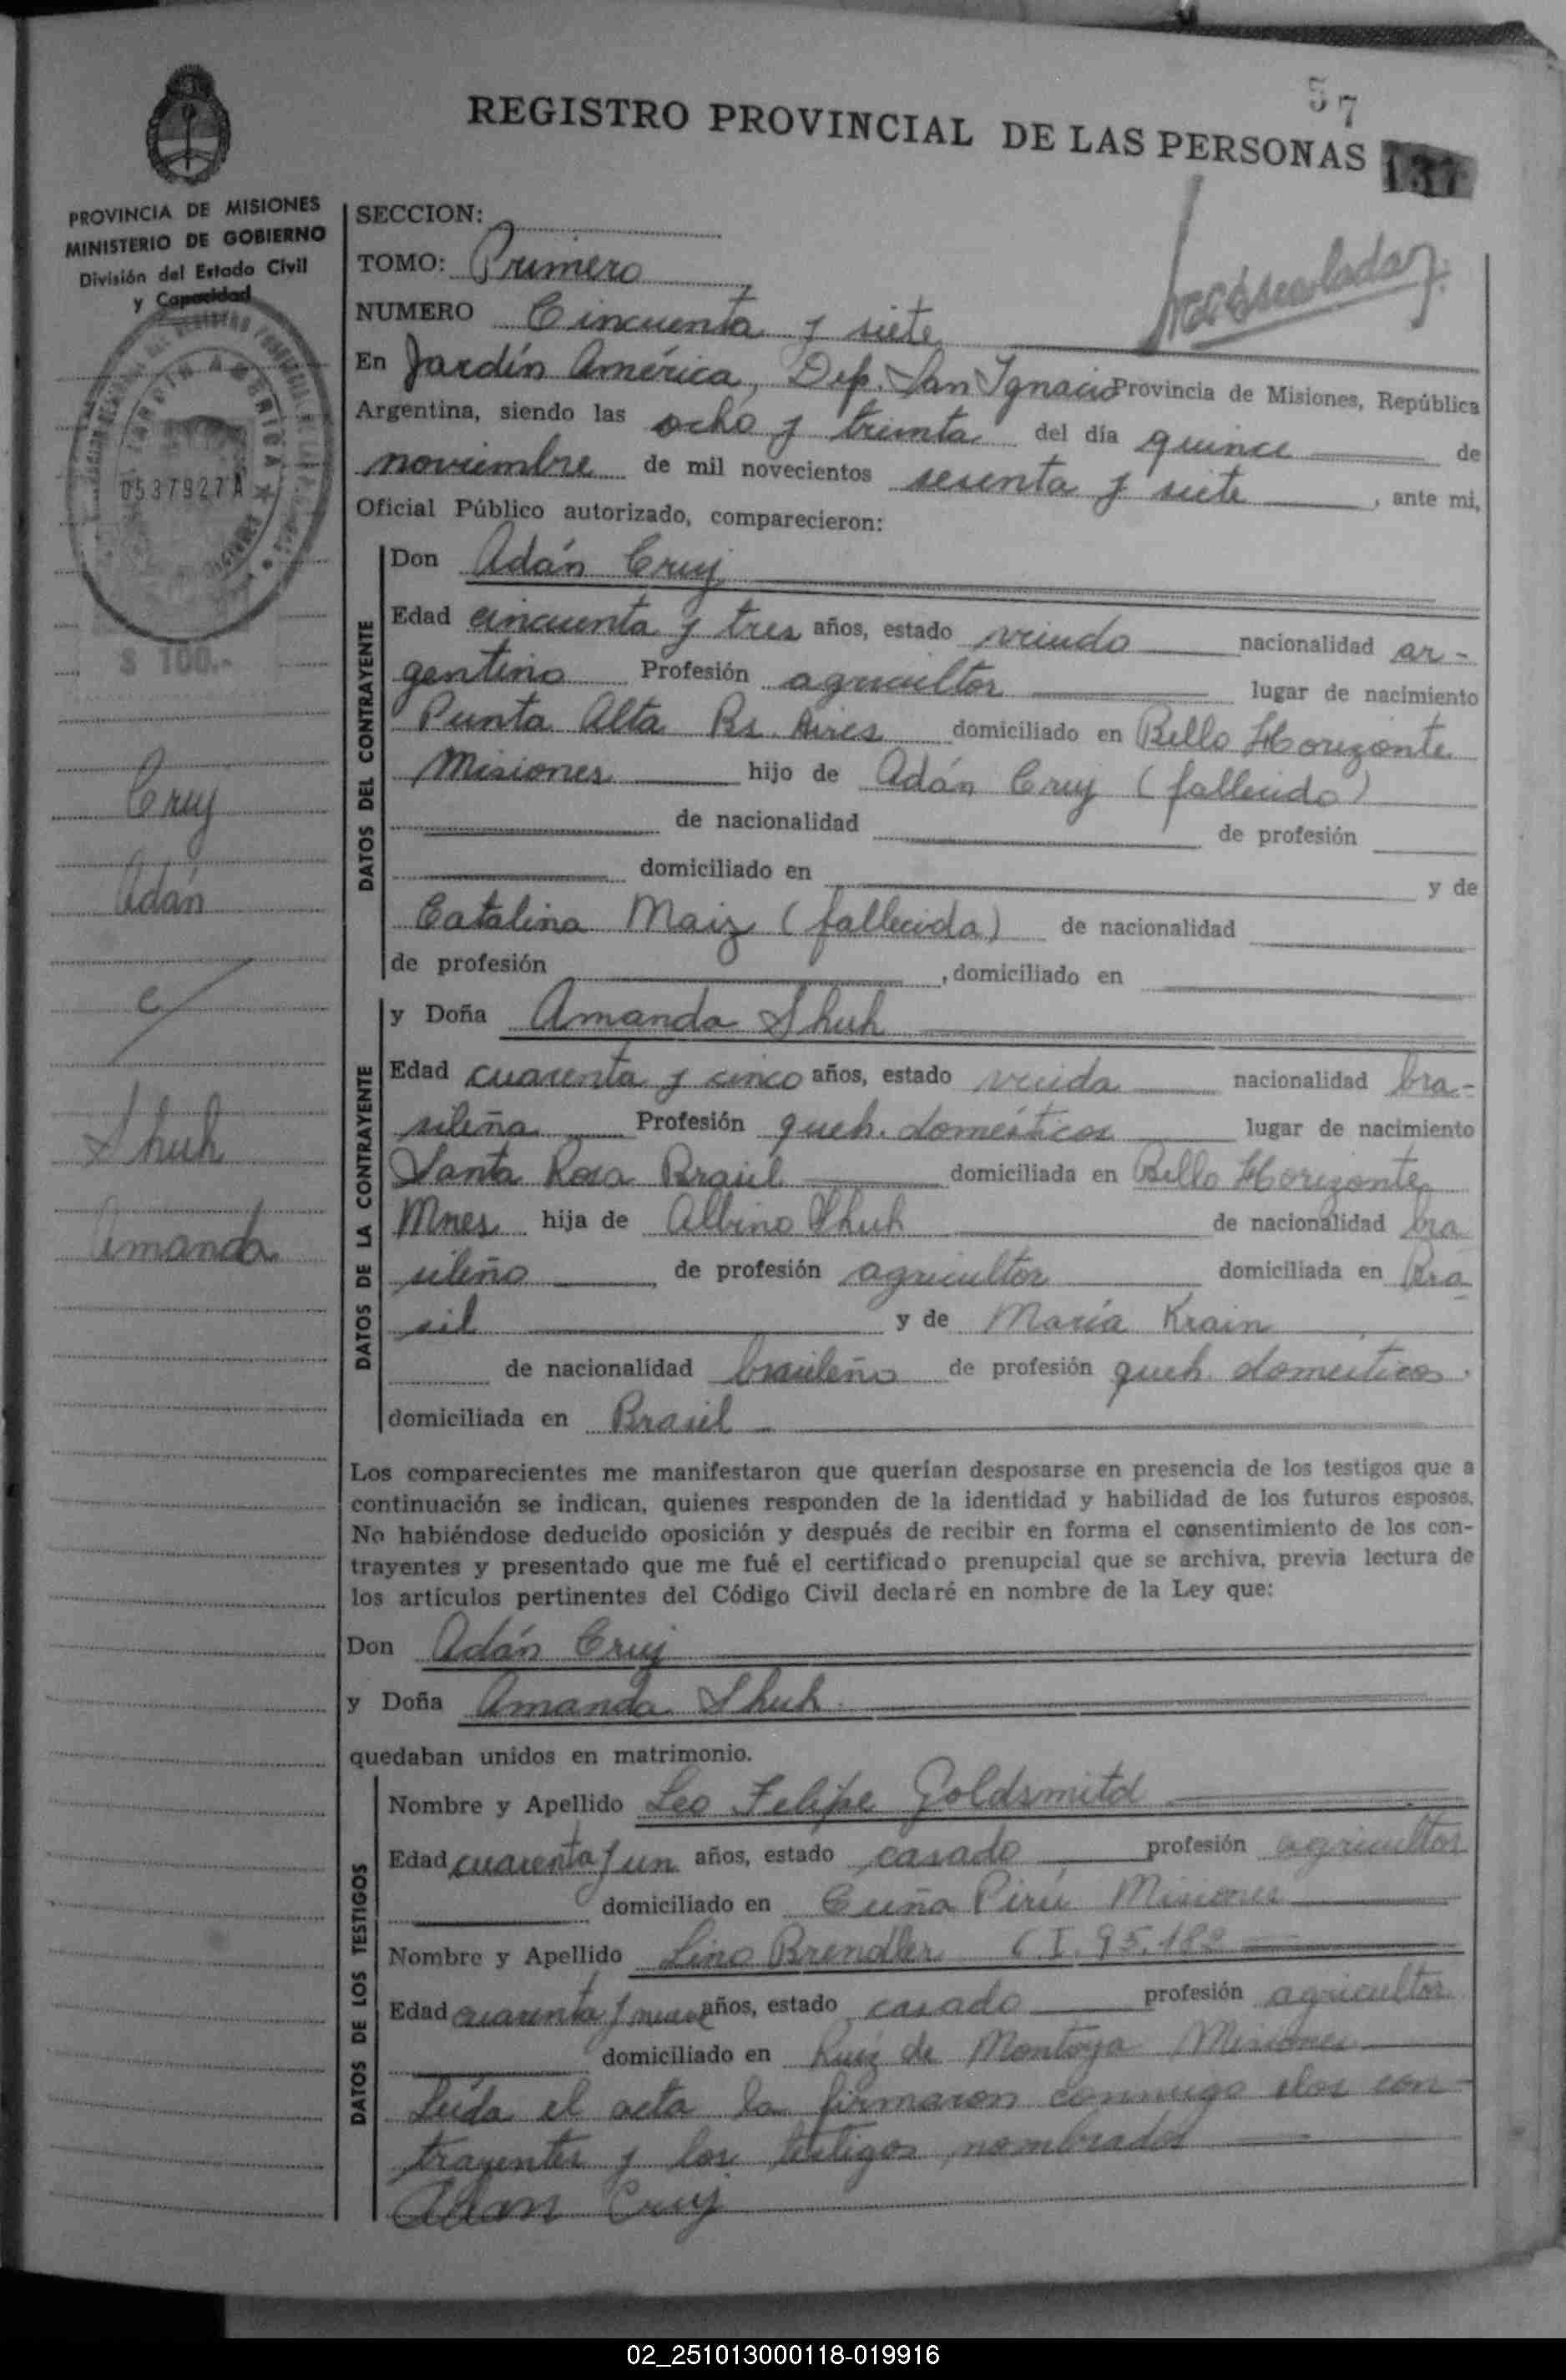 57
REGISTRO PROVINCIAL DE LAS PERSONAS 137
PROVINCIA DE MISIONES
MINISTERIO DE GOBIERNO
División del Estado Civil
y Capacidad
0537927A
$ 100.-
Cruz
Adán
c/
Shuh
Amanda
SECCION:
TOMO: Primero
NUMERO Cincuenta y siete
En Jardín América, Dep. San Ignacio Provincia de Misiones, República
Argentina, siendo las ocho y treinta del día quince de
noviembre de mil novecientos sesenta y siete, ante mi,
Oficial Público autorizado, comparecieron:
DATOS DEL CONTRAYENTE
Don Adán Cruz
Edad cincuenta y tres años, estado viudo nacionalidad ar-
gentino Profesión agricultor lugar de nacimiento
Punta Alta Bs. Aires domiciliado en Bello Horizonte
Misiones hijo de Adán Cruz (fallecido)
de nacionalidad de profesión
domiciliado en y de
Catalina Maiz (fallecida) de nacionalidad
de profesión , domiciliado en
DATOS DE LA CONTRAYENTE
y Doña Amanda Shuh
Edad cuarenta y cinco años, estado viuda nacionalidad bra-
sileña Profesión queh. domésticos lugar de nacimiento
Santa Rosa Brasil domiciliada en Bello Horizonte
Mnes hija de Albino Shuh de nacionalidad bra
sileño de profesión agricultor domiciliada en Bra
sil y de María Krain
de nacionalidad brasileño de profesión queh. domesticos.
domiciliada en Brasil
Los comparecientes me manifestaron que querían desposarse en presencia de los testigos que a
continuación se indican, quienes responden de la identidad y habilidad de los futuros esposos.
No habiéndose deducido oposición y después de recibir en forma el consentimiento de los con-
trayentes y presentado que me fué el certificado prenupcial que se archiva, previa lectura de
los artículos pertinentes del Código Civil declaré en nombre de la Ley que:
Don Adán Cruz
y Doña Amanda Shuh
quedaban unidos en matrimonio.
DATOS DE LOS TESTIGOS
Nombre y Apellido Leo Felipe Goldsmitd
Edad cuarenta y un años, estado casado profesión agricultor
domiciliado en Cuña Pirú Misiones
Nombre y Apellido Lino Brendler C I. 95.182
Edad cuarenta y nueve años, estado casado profesión agricultor
domiciliado en Ruiz de Montoya Misiones
Leída el acta la firmaron conmigo los con-
trayentes y los testigos nombrados
Adan Cruz
02_251013000118-019916